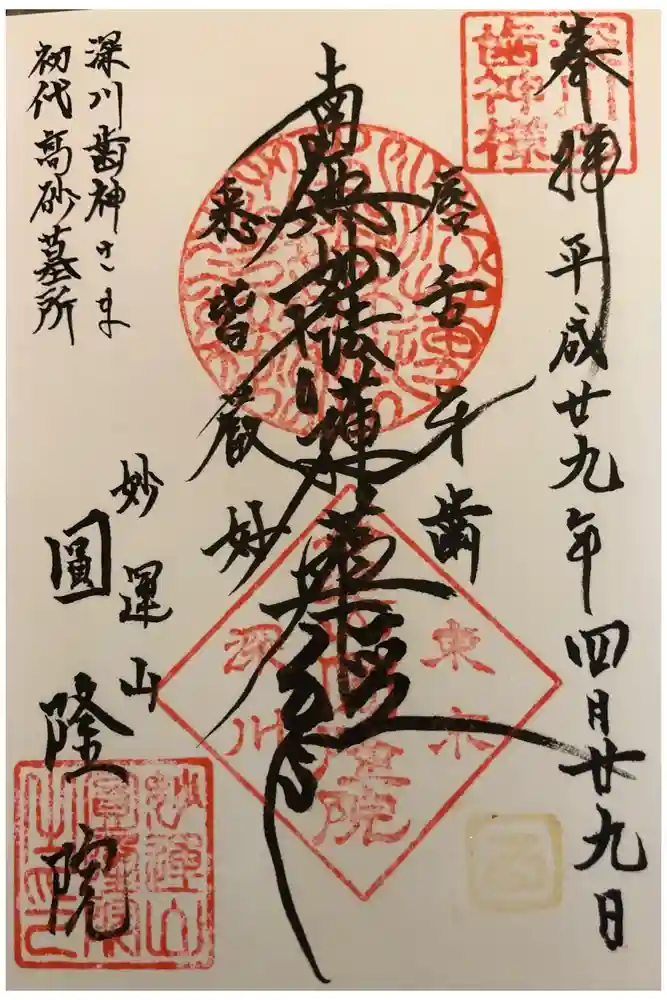 奉拝
平成廿九年四月廿九日
深川
歯神様
唇舌牙歯
南無妙法蓮華経
悉皆厳妙
東京
深川
圓隆院
深川歯神さま
初代高砂墓所
妙運山
圓隆院
妙運山
圓隆院